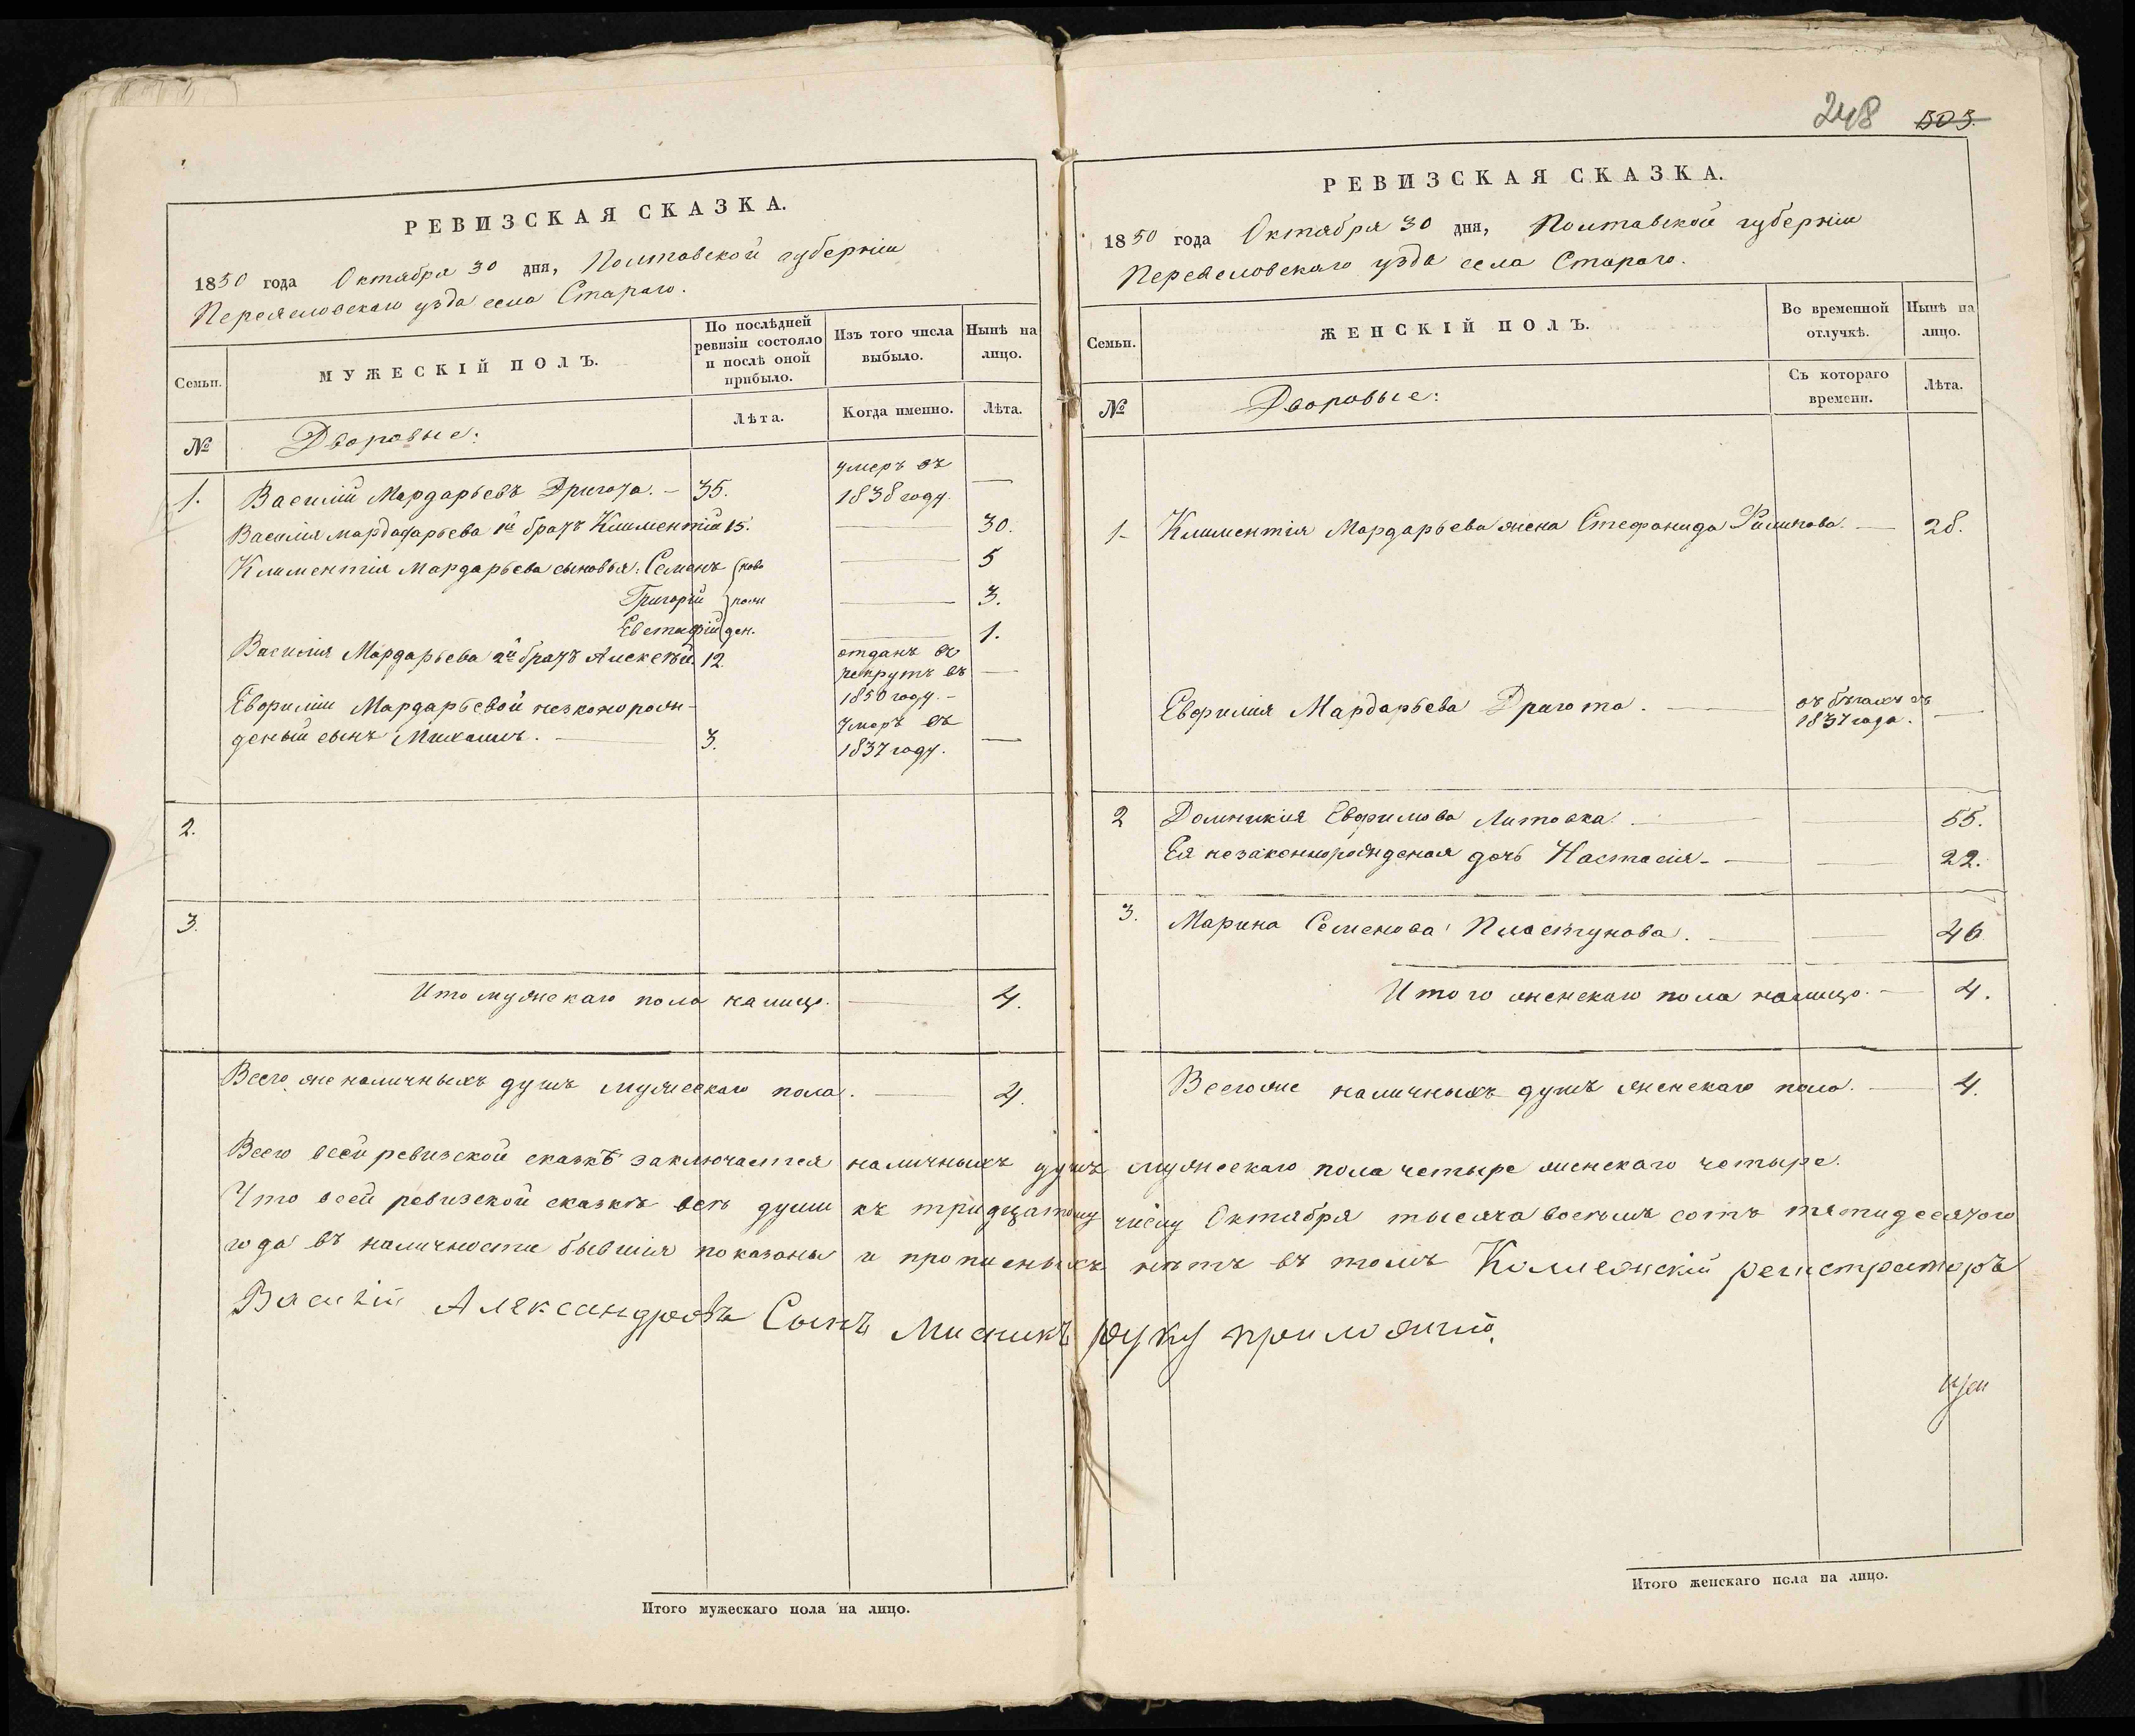 РЕВИЗСКАЯ СКАЗКА.
1850 года Октября 30 дня, Полтавской губерніи
Переяславскаго уѣзда села Стараго.
Семьи.
МУЖЕСКІЙ ПОЛЪ.
По послѣдней ревизіи состояло и послѣ оной прибыло.
Изъ того числа выбыло.
Нынѣ на лицо.
№
Дворовые:
Лѣта.
Когда именно.
Лѣта.
1. Василій Мардарьевъ Дригота. — 35. умеръ въ 1838 году. —
Василія мардадарьева 1й братъ Климентій 15. — 30.
Климентія Мардарьева сыновья: Семенъ ново — 5
Григорій рож — 3.
Евстафій ден. — 1.
Василія Мардарьева 2й братъ Алексѣй. 12. отданъ въ рекрутъ въ 1850 году. —
Евфиміи Мардарьевой незконорож-
деный сынъ Михаилъ. — 3. Умеръ въ 1837 году. —
2.
3.
Итого мужескаго пола налицо. — 4.
Всего же наличныхъ душъ мужескаго пола. — 4.
248 505.
РЕВИЗСКАЯ СКАЗКА.
1850 года Октября 30 дня, Полтавской губерніи
Переяславскаго уѣзда села Стараго.
Семьи.
ЖЕНСКІЙ ПОЛЪ.
Во временной отлучкѣ.
Нынѣ на лицо.
№
Дворовые:
Съ котораго времени.
Лѣта.
1 Климентія Мардарьева жена Стефанида Филипова. — 28.
Евфимія Мардарьева Дригота. — въ бѣгахъ съ 1837 года. —
2 Домникія Евфимова Литовка. — 55.
Ея незаконнорожденая дочь Настасія — 22.
3. Марина Семенова Пластунова. — 46
Итого женскаго пола налицо. — 4.
Всего же наличныхъ душъ женскаго пола. — 4.
Всего всей ревизской сказкѣ заключается наличныхъ душъ мужескаго пола четыре женскаго четыре.
Что всей ревизской сказкѣ всѣ души къ тридцатому числу Октября тысяча восемь сотъ пятидесятого
года въ наличности бывшія показаны и прописныхъ нѣтъ въ томъ Колежскій регистраторъ
Василій Александровъ Сынъ Мисникъ руку приложилъ.
Итого мужескаго пола на лицо.
Итого женскаго пола на лицо.